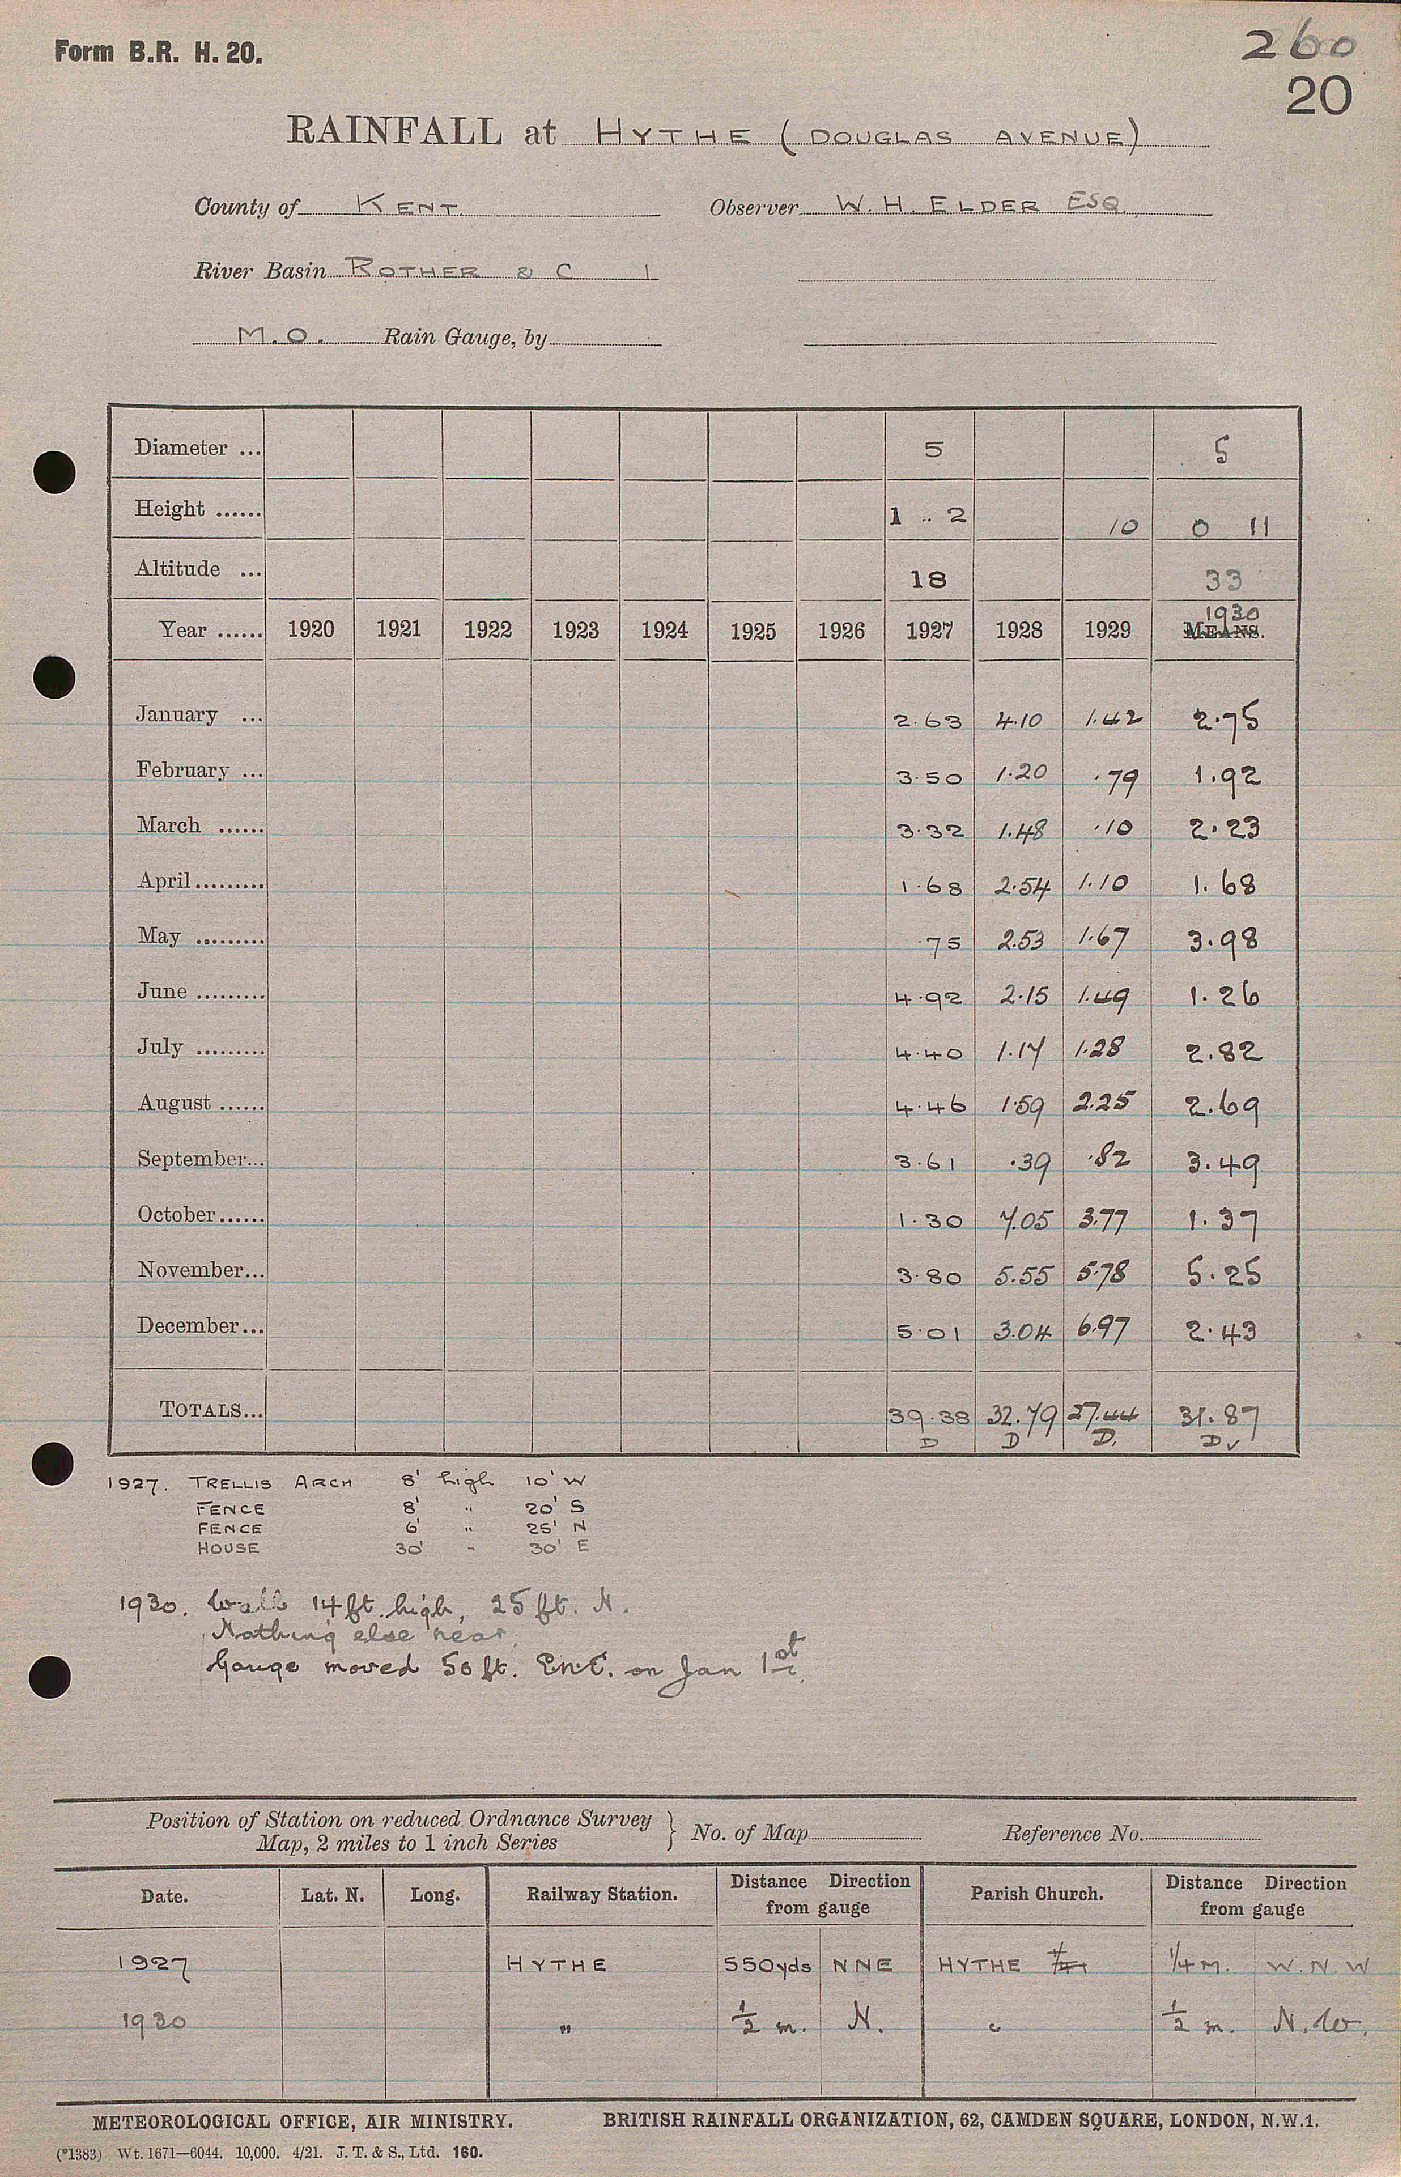 Form B.R. H. 20.
260
20
RAINFALL at HYTHE (DOUGLAS AVENUE)
County of KENT Observer W. H. ELDER ESQ
River Basin ROTHER & C 1
M.O. Rain Gauge, by
Diameter ... 5 5
Height ...... 1 .. 2 10 0 11
Altitude ... 18 33
1930
Year ...... 1920 1921 1922 1923 1924 1925 1926 1927 1928 1929 MEANS.
January ... 2.63 4.10 1.42 2.75
February ... 3.50 1.20 .79 1.92
March ...... 3.32 1.48 .10 2.23
April......... 1.68 2.54 1.10 1.68
May ......... .75 2.53 1.67 3.98
June ......... 4.92 2.15 1.49 1.26
July ......... 4.40 1.17 1.28 2.82
August ...... 4.46 1.59 2.25 2.69
September... 3.61 .39 .82 3.49
October...... 1.30 7.05 3.77 1.37
November... 3.80 5.55 5.78 5.25
December... 5.01 3.04 6.97 2.43
TOTALS... 39.38 32.79 27.44 31.87
D D D. D ✓
1927. TRELLIS ARCH 8' high 10' W
FENCE 8' " 20' S
FENCE 6' " 25' N
HOUSE 30' " 30' E
1930. Wall 14 ft. high, 25 ft. N.
Nothing else near.
Gauge moved 50 ft. E.N.E. on Jan 1st.
Position of Station on reduced Ordnance Survey
Map, 2 miles to 1 inch Series } No. of Map Reference No.
Date. Lat. N. Long. Railway Station. Distance Direction from gauge Parish Church. Distance Direction from gauge
1927 HYTHE 550yds NNE HYTHE 1/4 m. W.N.W
1930 " 1/2 m. N. " 1/2 m. N.W.
METEOROLOGICAL OFFICE, AIR MINISTRY. BRITISH RAINFALL ORGANIZATION, 62, CAMDEN SQUARE, LONDON, N.W.1.
(*1383) Wt. 1671—6044. 10,000. 4/21. J. T. & S., Ltd. 160.